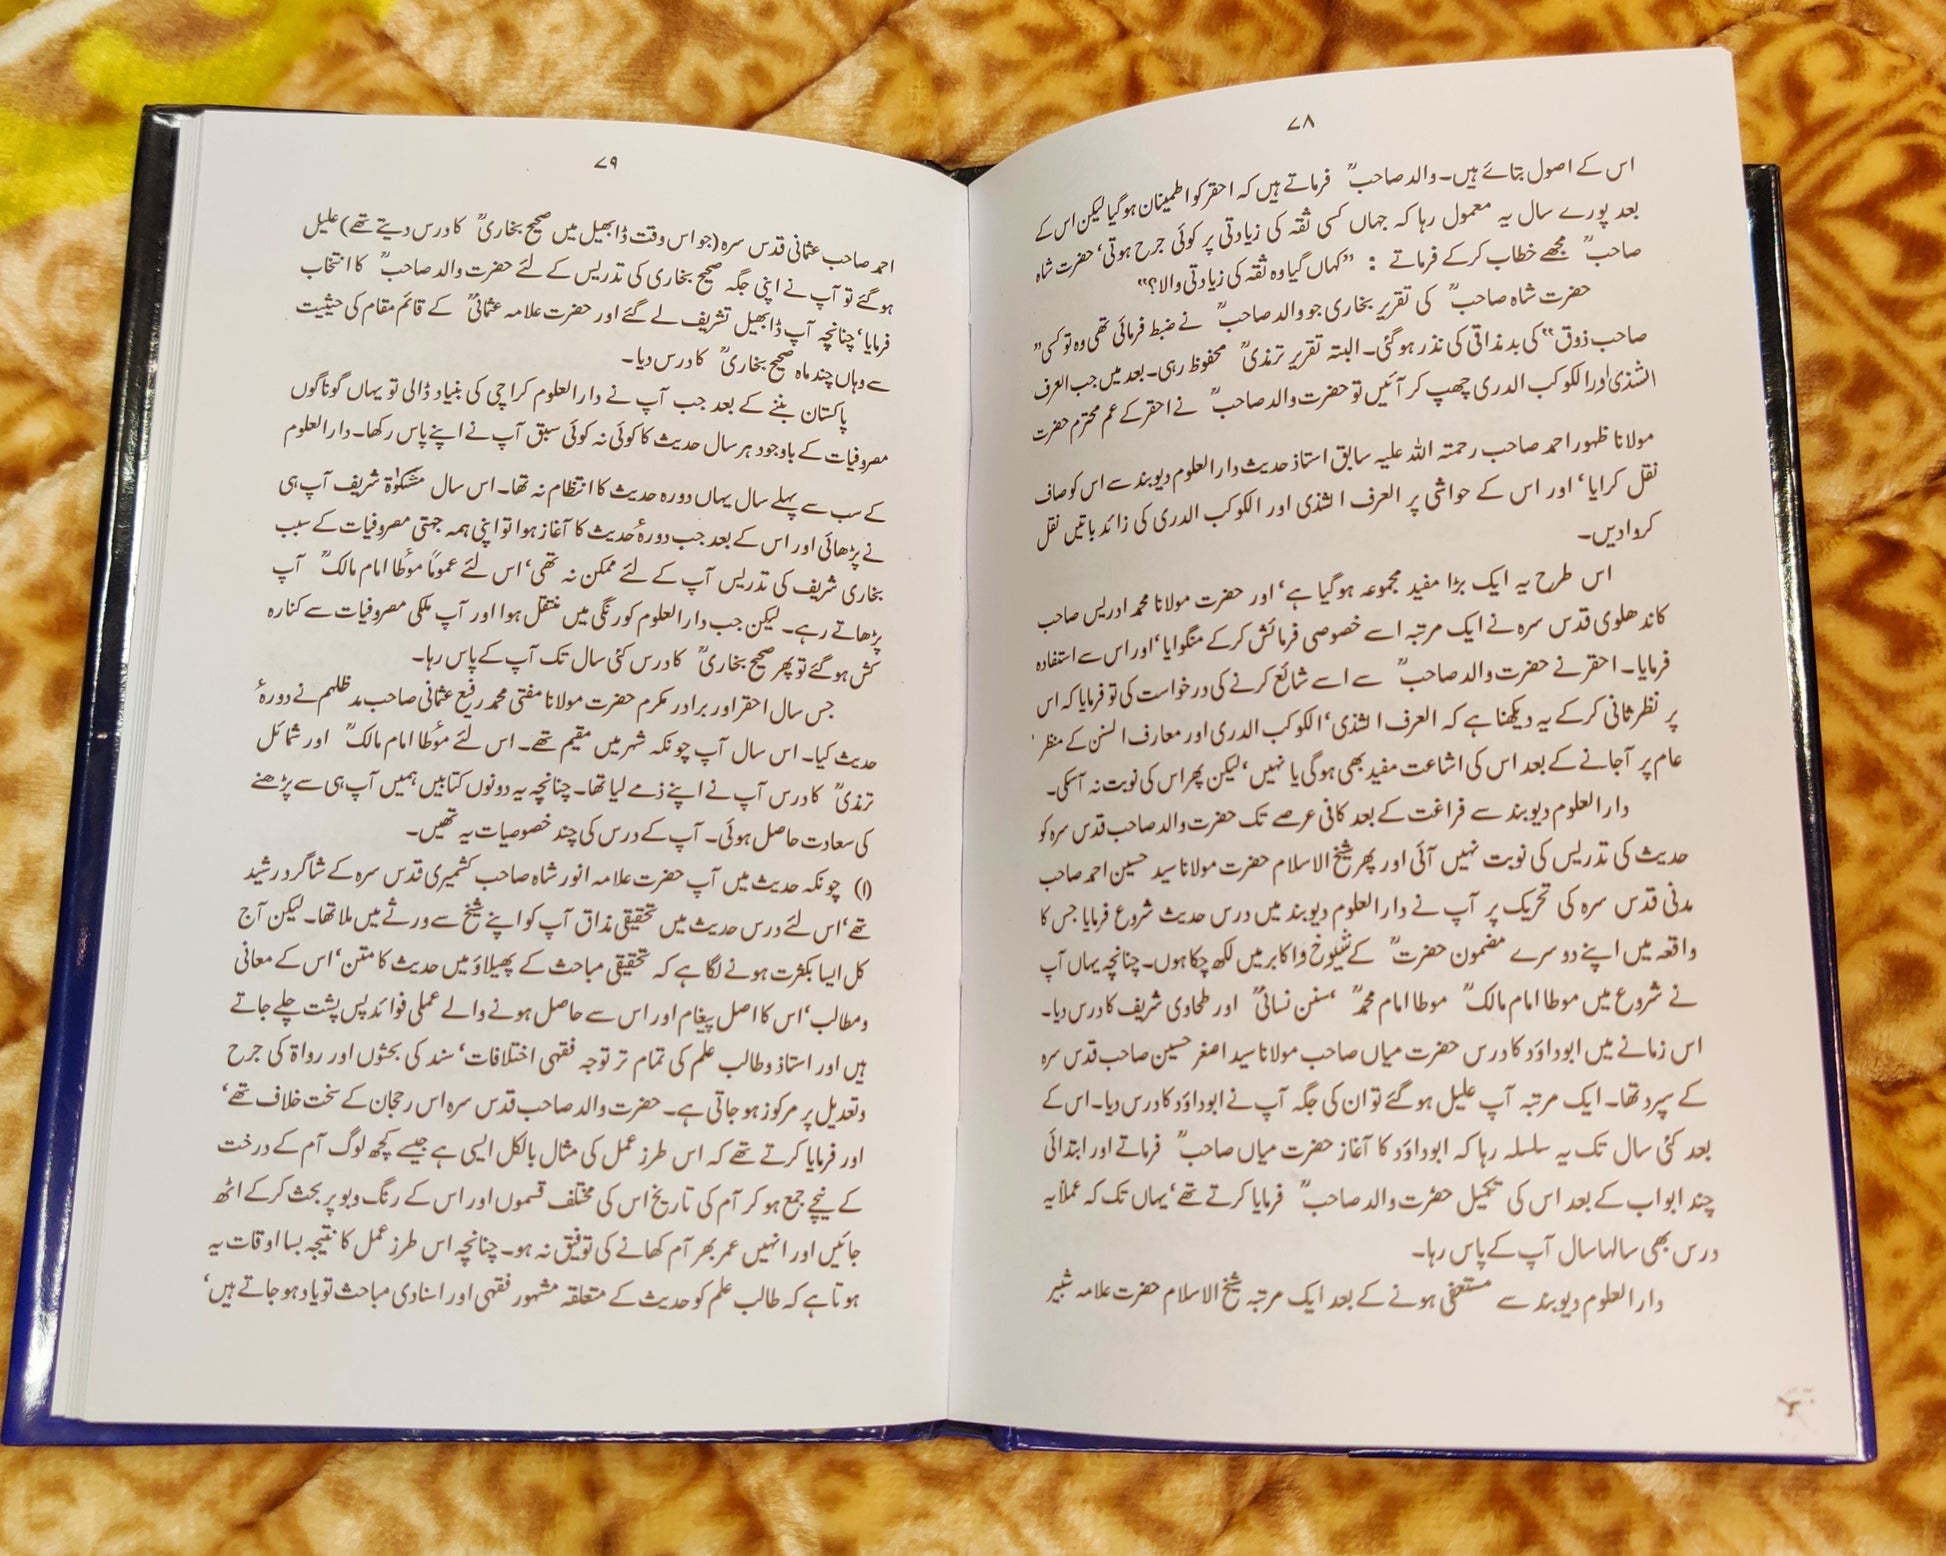 ۷۸
اس کے اصول بتائے ہیں۔ والد صاحبؒ فرماتے ہیں کہ احقر کو اطمینان ہو گیا لیکن اس کے
بعد پورے سال یہ معمول رہا کہ جہاں کسی ثقہ کی زیادتی پر کوئی جرح ہوتی، حضرت شاہ
صاحبؒ مجھے خطاب کرکے فرماتے : "کہاں گیا وہ ثقہ کی زیادتی والا؟"
حضرت شاہ صاحبؒ کی تقریر بخاری جو والد صاحبؒ نے ضبط فرمائی تھی وہ تو کسی "
صاحب ذوق" کی بدمذاقی کی نذر ہو گئی۔ البتہ تقریر ترمذیؒ محفوظ رہی۔ بعد میں جب العرف
الشذی اور الکوکب الدری چھپ کر آئیں تو حضرت والد صاحبؒ نے احقر کے عم محترم حضرت
مولانا ظہور احمد صاحب رحمتہ اللہ علیہ سابق استاذ حدیث دارالعلوم دیوبند سے اس کو صاف
نقل کرایا، اور اس کے حواشی پر العرف الشذی اور الکوکب الدری کی زائد باتیں نقل
کروادیں۔
اس طرح یہ ایک بڑا مفید مجموعہ ہو گیا ہے، اور حضرت مولانا محمد ادریس صاحب
کاندھلوی قدس سرہ نے ایک مرتبہ اسے خصوصی فرمائش کرکے منگوایا، اور اس سے استفادہ
فرمایا۔ احقر نے حضرت والد صاحبؒ سے اسے شائع کرنے کی درخواست کی تو فرمایا کہ اس
پر نظر ثانی کرکے یہ دیکھنا ہے کہ العرف الشذی، الکوکب الدری اور معارف السنن کے منظر
عام پر آجانے کے بعد اس کی اشاعت مفید بھی ہوگی یا نہیں، لیکن پھر اس کی نوبت نہ آسکی۔
دارالعلوم دیوبند سے فراغت کے بعد کافی عرصے تک حضرت والد صاحب قدس سرہ کو
حدیث کی تدریس کی نوبت نہیں آئی اور پھر شیخ الاسلام حضرت مولانا سید حسین احمد صاحب
مدنی قدس سرہ کی تحریک پر آپ نے دارالعلوم دیوبند میں درس حدیث شروع فرمایا جس کا
واقعہ میں اپنے دوسرے مضمون حضرتؒ کے شیوخ و اکابر میں لکھ چکا ہوں۔ چنانچہ یہاں آپ
نے شروع میں موطا امام مالکؒ موطا امام محمدؒ، سنن نسائیؒ اور طحاوی شریف کا درس دیا۔
اس زمانے میں ابوداؤد کا درس حضرت میاں صاحب مولانا سید اصغر حسین صاحب قدس سرہ
کے سپرد تھا۔ ایک مرتبہ آپ علیل ہو گئے تو ان کی جگہ آپ نے ابوداؤد کا درس دیا۔ اس کے
بعد کئی سال تک یہ سلسلہ رہا کہ ابوداؤد کا آغاز حضرت میاں صاحبؒ فرماتے اور ابتدائی
چند ابواب کے بعد اس کی تکمیل حضرت والد صاحبؒ فرمایا کرتے تھے، یہاں تک کہ عملاً یہ
درس بھی سالہا سال آپ کے پاس رہا۔
دارالعلوم دیوبند سے مستعفی ہونے کے بعد ایک مرتبہ شیخ الاسلام حضرت علامہ شبیر
۷۹
احمد صاحب عثمانی قدس سرہ (جو اس وقت ڈابھیل میں صحیح بخاریؒ کا درس دیتے تھے) علیل
ہو گئے تو آپ نے اپنی جگہ صحیح بخاری کی تدریس کے لئے حضرت والد صاحبؒ کا انتخاب
فرمایا، چنانچہ آپ ڈابھیل تشریف لے گئے اور حضرت علامہ عثمانیؒ کے قائم مقام کی حیثیت
سے وہاں چند ماہ صحیح بخاریؒ کا درس دیا۔
پاکستان بننے کے بعد جب آپ نے دارالعلوم کراچی کی بنیاد ڈالی تو یہاں گوناگوں
مصروفیات کے باوجود ہر سال حدیث کا کوئی نہ کوئی سبق آپ نے اپنے پاس رکھا۔ دارالعلوم
کے سب سے پہلے سال یہاں دورہ حدیث کا انتظام نہ تھا۔ اس سال مشکوٰۃ شریف آپ ہی
نے پڑھائی اور اس کے بعد جب دورۂ حدیث کا آغاز ہوا تو اپنی ہمہ جہتی مصروفیات کے سبب
بخاری شریف کی تدریس آپ کے لئے ممکن نہ تھی، اس لئے عموماً موطا امام مالکؒ آپ
پڑھاتے رہے۔ لیکن جب دارالعلوم کورنگی میں منتقل ہوا اور آپ ملکی مصروفیات سے کنارہ
کش ہو گئے تو پھر صحیح بخاریؒ کا درس کئی سال تک آپ کے پاس رہا۔
جس سال احقر اور برادر مکرم حضرت مولانا مفتی محمد رفیع عثمانی صاحب مدظلہم نے دورۂ
حدیث کیا۔ اس سال آپ چونکہ شہر میں مقیم تھے۔ اس لئے موطا امام مالکؒ اور شمائل
ترمذیؒ کا درس آپ نے اپنے ذمے لیا تھا۔ چنانچہ یہ دونوں کتابیں ہمیں آپ ہی سے پڑھنے
کی سعادت حاصل ہوئی۔ آپ کے درس کی چند خصوصیات یہ تھیں۔
(۱) چونکہ حدیث میں آپ حضرت علامہ انور شاہ صاحب کشمیری قدس سرہ کے شاگرد رشید
تھے، اس لئے درس حدیث میں تحقیقی مذاق آپ کو اپنے شیخ سے ورثے میں ملا تھا۔ لیکن آج
کل ایسا بکثرت ہونے لگا ہے کہ تحقیقی مباحث کے پھیلاؤ میں حدیث کا متن، اس کے معانی
و مطالب، اس کا اصل پیغام اور اس سے حاصل ہونے والے عملی فوائد پس پشت چلے جاتے
ہیں اور استاذ و طالب علم کی تمام تر توجہ فقہی اختلافات، سند کی بحثوں اور رواۃ کی جرح
و تعدیل پر مرکوز ہو جاتی ہے۔ حضرت والد صاحب قدس سرہ اس رجحان کے سخت خلاف تھے،
اور فرمایا کرتے تھے کہ اس طرز عمل کی مثال بالکل ایسی ہے جیسے کچھ لوگ آم کے درخت
کے نیچے جمع ہو کر آم کی تاریخ اس کی مختلف قسموں اور اس کے رنگ و بو پر بحث کرکے اٹھ
جائیں اور انہیں عمر بھر آم کھانے کی توفیق نہ ہو۔ چنانچہ اس طرز عمل کا نتیجہ بسا اوقات یہ
ہوتا ہے کہ طالب علم کو حدیث کے متعلقہ مشہور فقہی اور اسنادی مباحث تو یاد ہو جاتے ہیں،